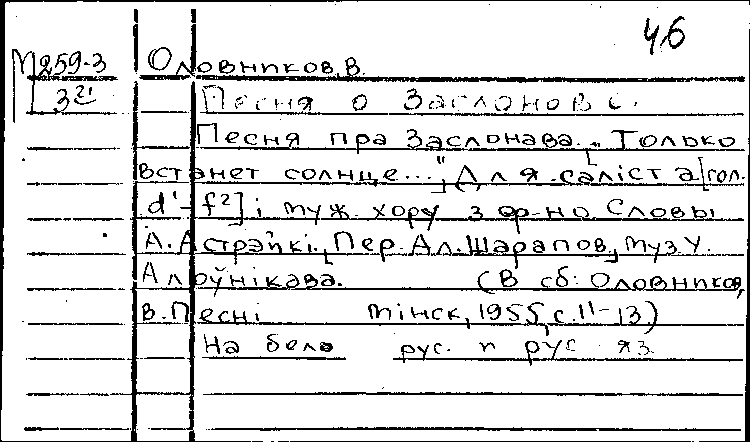 46
М259-3 Оловников, В.
3 21 Песня о Заслонове.
Песня пра Заслонава. „Только
встанет солнце...", Для салiста [гол.
d'-f²] i муж. хору з ф-но. Словы
А. Астрэйкi. [Пер. Ал. Шарапов], муз. У.
Алоўнiкава. (В сб: Оловников,
В. Песнi Мiнск, 1955, с. 11-13)
На бело рус. и рус яз.